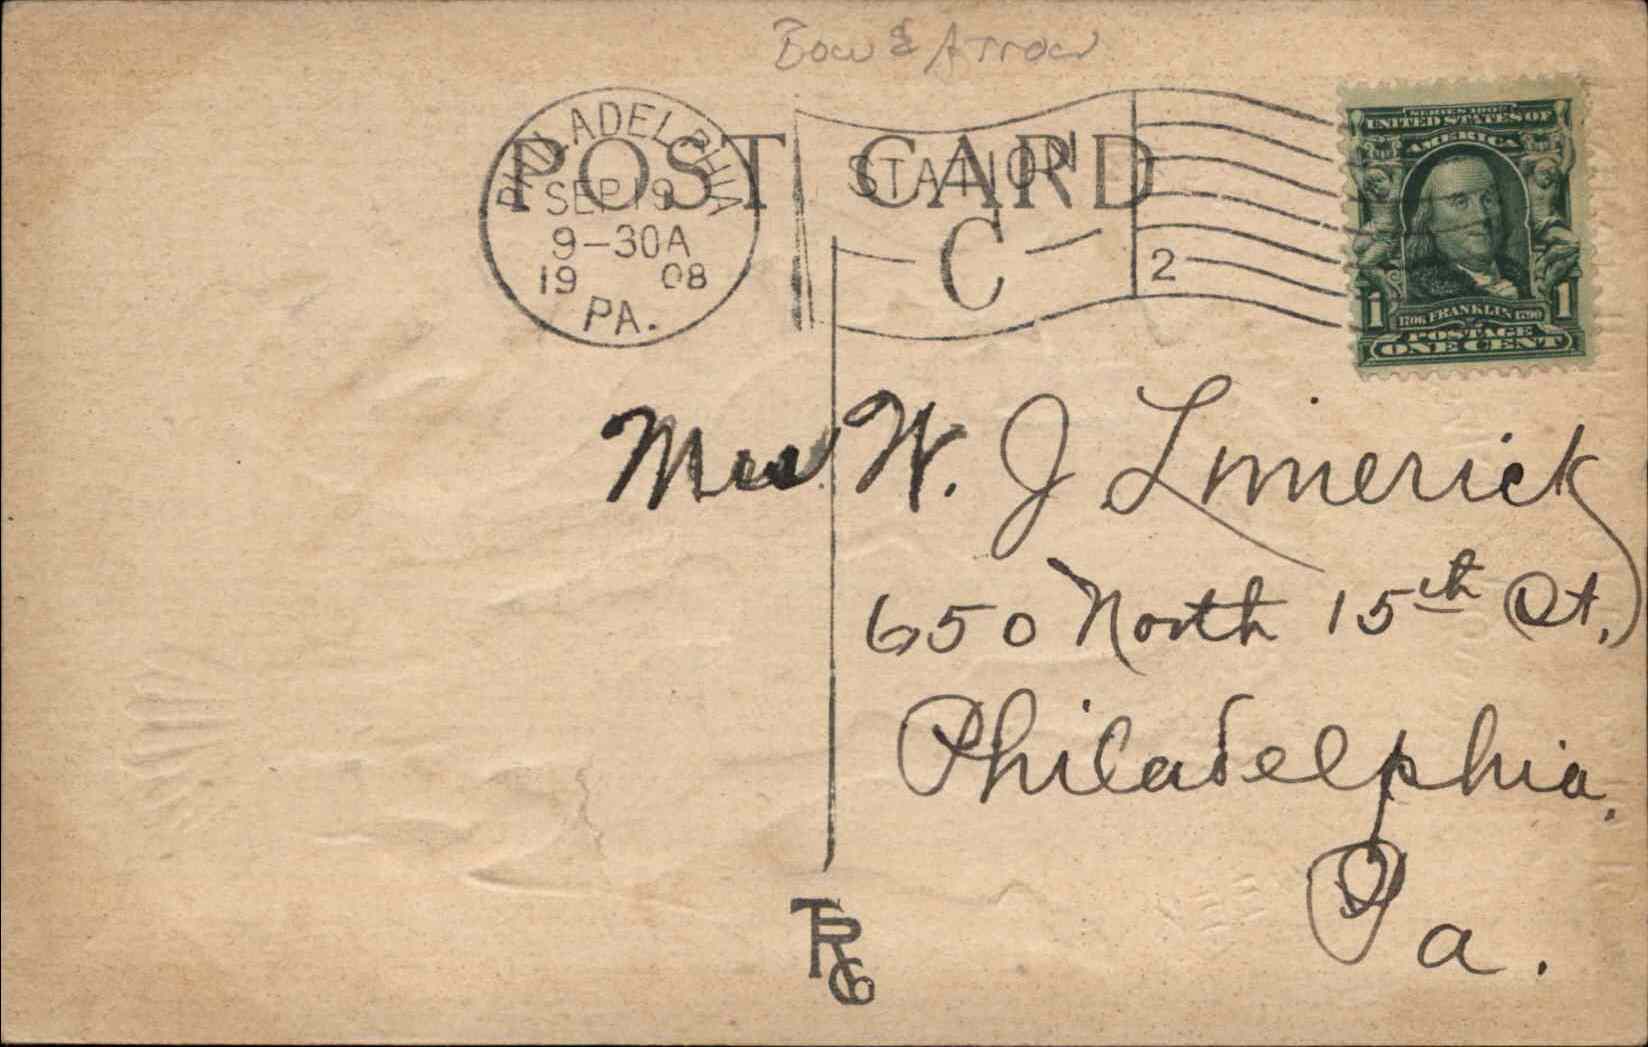 Bow & Arrow
POST CARD
PHILADELPHIA
SEP 19
9-30A
1908
PA.
STATION
C
2
SERIES 1902
UNITED STATES OF
AMERICA
1 1706 FRANKLIN 1790 1
POSTAGE
ONE CENT
Mrs. W. J. Limerick
650 North 15th St,
Philadelphia,
Pa.
TRCo